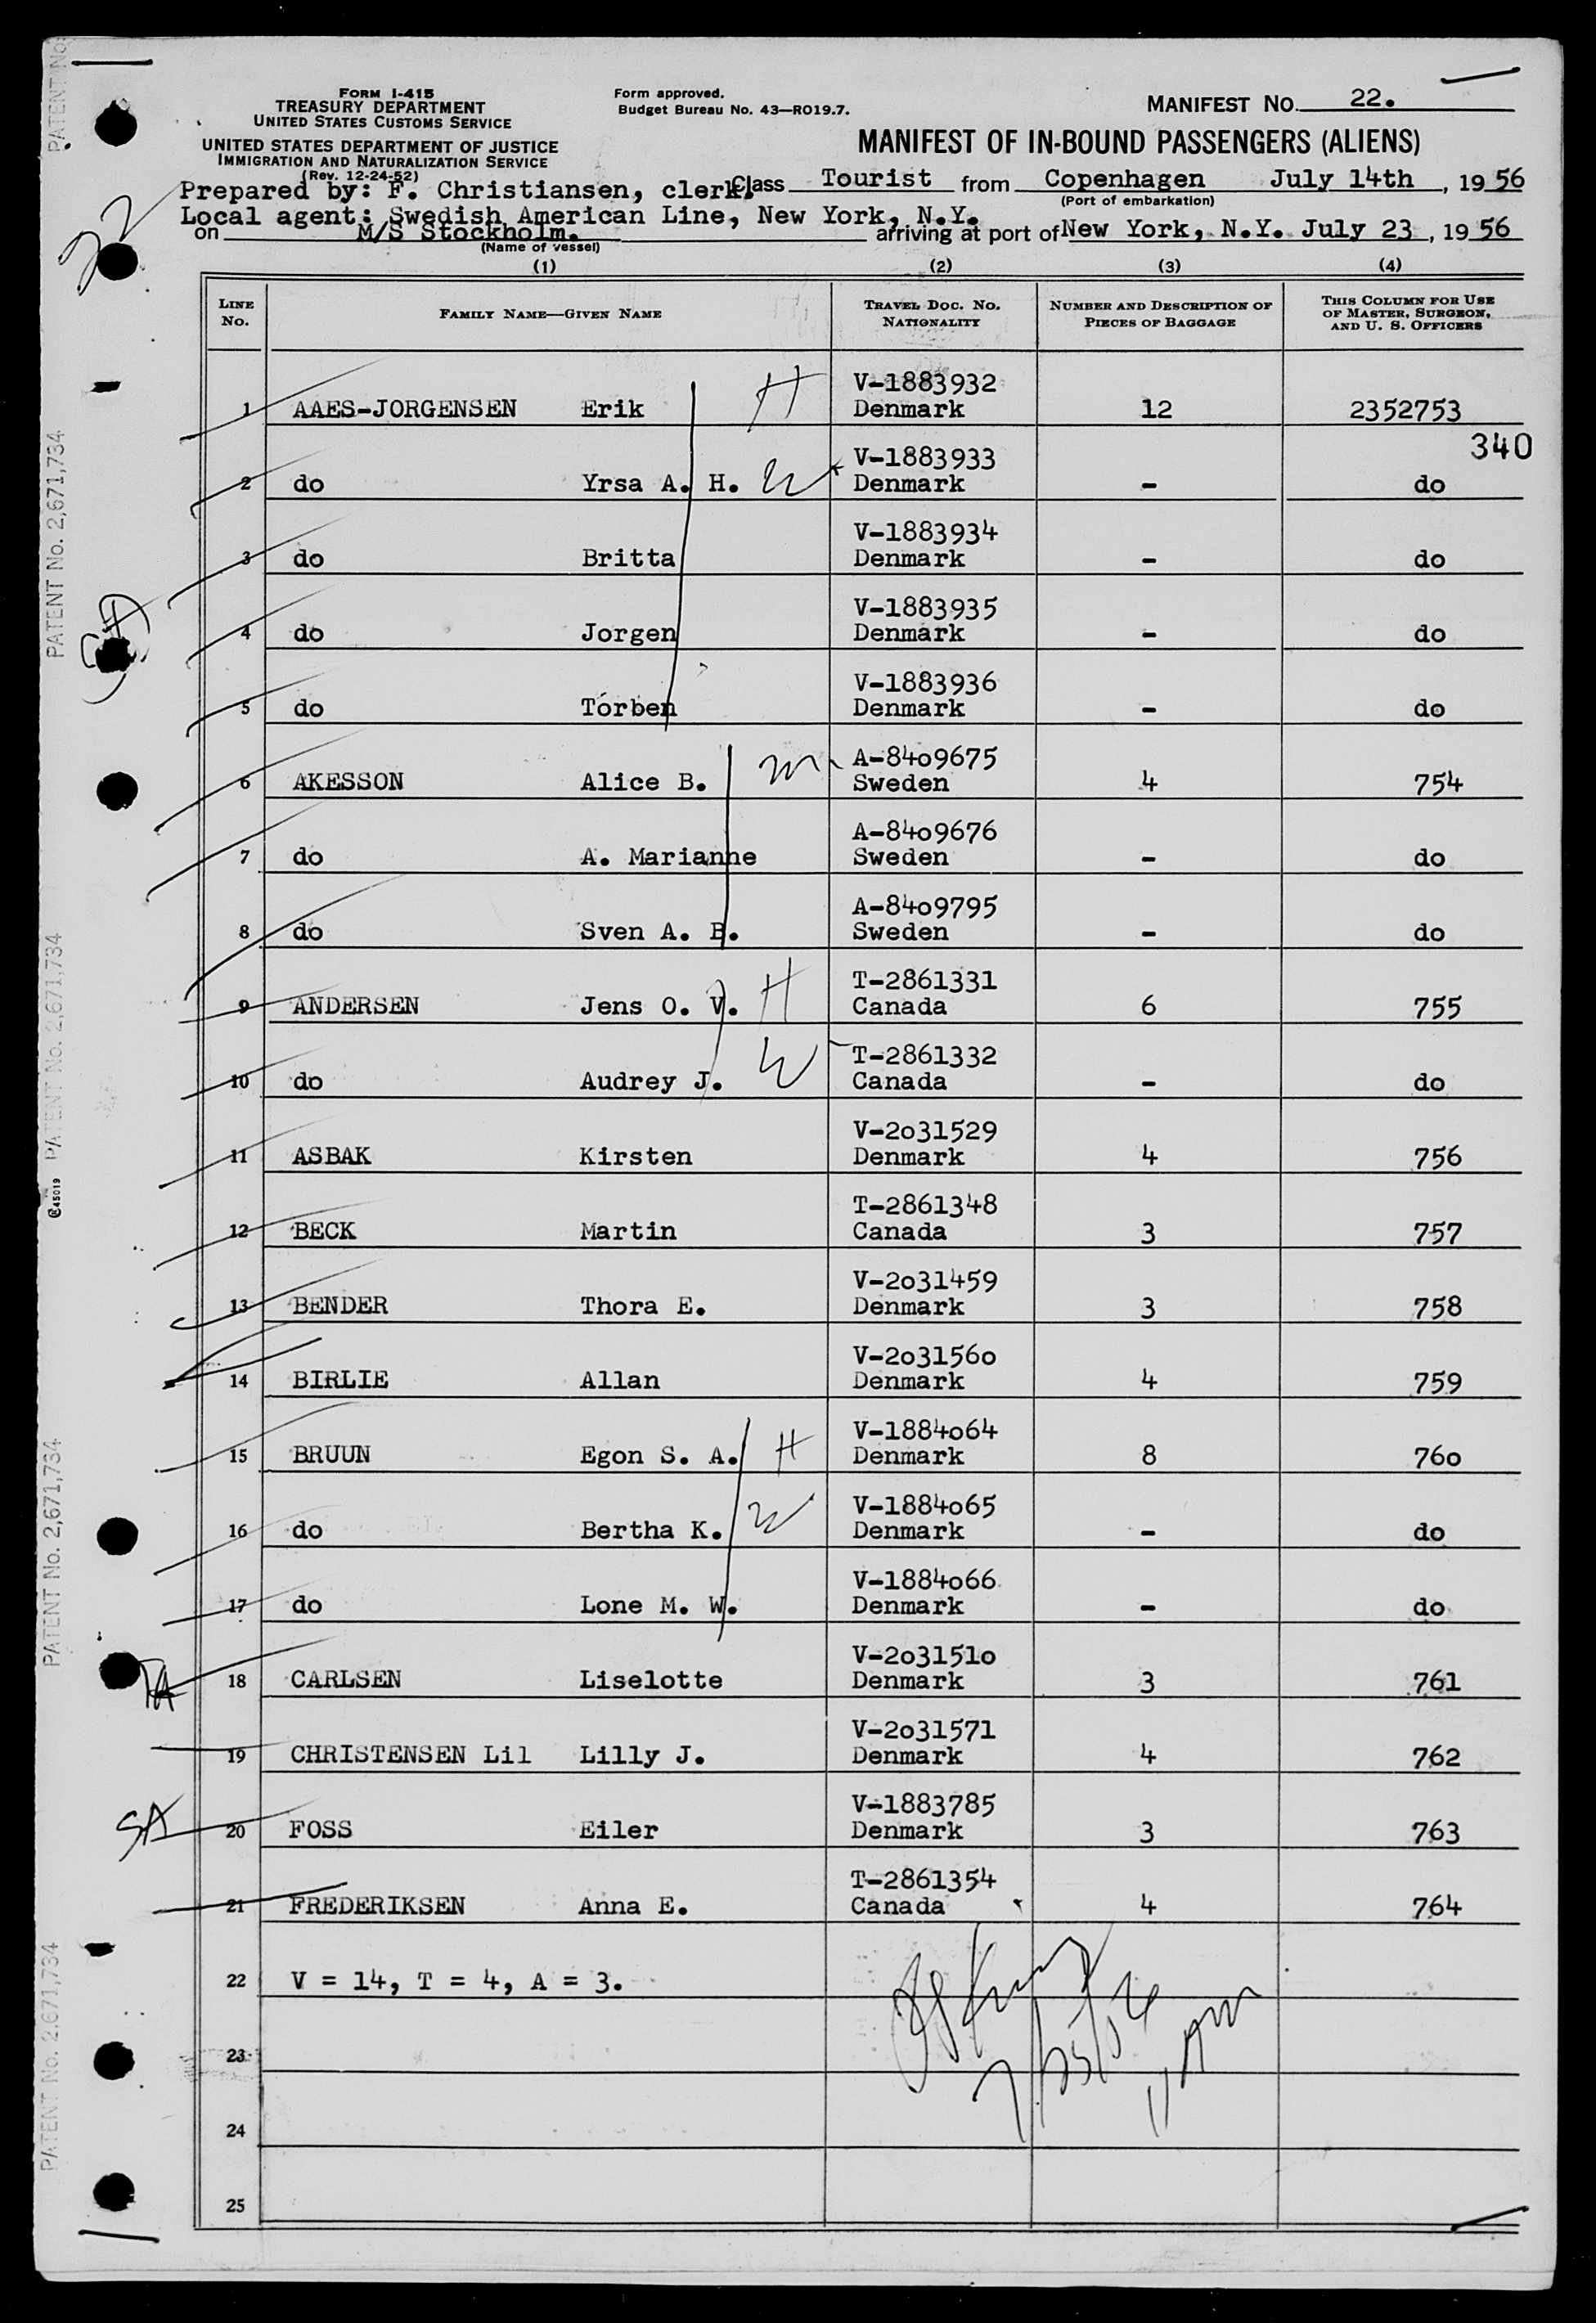 FORM I-415
TREASURY DEPARTMENT
UNITED STATES CUSTOMS SERVICE
UNITED STATES DEPARTMENT OF JUSTICE
IMMIGRATION AND NATURALIZATION SERVICE
(Rev. 12-24-52)
Form approved.
Budget Bureau No. 43—RO19.7.
MANIFEST NO. 22.
MANIFEST OF IN-BOUND PASSENGERS (ALIENS)
Prepared by: F. Christiansen, clerk. Class Tourist from Copenhagen July 14th, 19 56
(Port of embarkation)
Local agent: Swedish American Line, New York, N.Y.
on M/S Stockholm. arriving at port of New York, N.Y. July 23, 19 56
(Name of vessel)
(1) (2) (3) (4)
LINE NO. FAMILY NAME—GIVEN NAME TRAVEL DOC. NO. NATIONALITY NUMBER AND DESCRIPTION OF PIECES OF BAGGAGE THIS COLUMN FOR USE OF MASTER, SURGEON, AND U. S. OFFICERS
V-1883932
1 AAES-JORGENSEN Erik H Denmark 12 2352753
340
V-1883933
2 do Yrsa A. H. W Denmark - do
V-1883934
3 do Britta Denmark - do
V-1883935
4 do Jorgen Denmark - do
V-1883936
5 do Torben Denmark - do
A-8409675
6 AKESSON Alice B. m Sweden 4 754
A-8409676
7 do A. Marianne Sweden - do
A-8409795
8 do Sven A. B. Sweden - do
T-2861331
9 ANDERSEN Jens O. V. H Canada 6 755
T-2861332
10 do Audrey J. W Canada - do
V-2031529
11 ASBAK Kirsten Denmark 4 756
T-2861348
12 BECK Martin Canada 3 757
V-2031459
13 BENDER Thora E. Denmark 3 758
V-2031560
14 BIRLIE Allan Denmark 4 759
V-1884064
15 BRUUN Egon S. A. H Denmark 8 760
V-1884065
16 do Bertha K. W Denmark - do
V-1884066
17 do Lone M. W. Denmark - do
V-2031510
18 CARLSEN Liselotte Denmark 3 761
V-2031571
19 CHRISTENSEN Lil Lilly J. Denmark 4 762
V-1883785
SA 20 FOSS Eiler Denmark 3 763
T-2861354
21 FREDERIKSEN Anna E. Canada 4 764
22 V = 14, T = 4, A = 3.
23
24
25
22
PATENT No. 2,671,734
PATENT No. 2,671,734
PATENT No. 2,671,734
PATENT No. 2,671,734
C45019